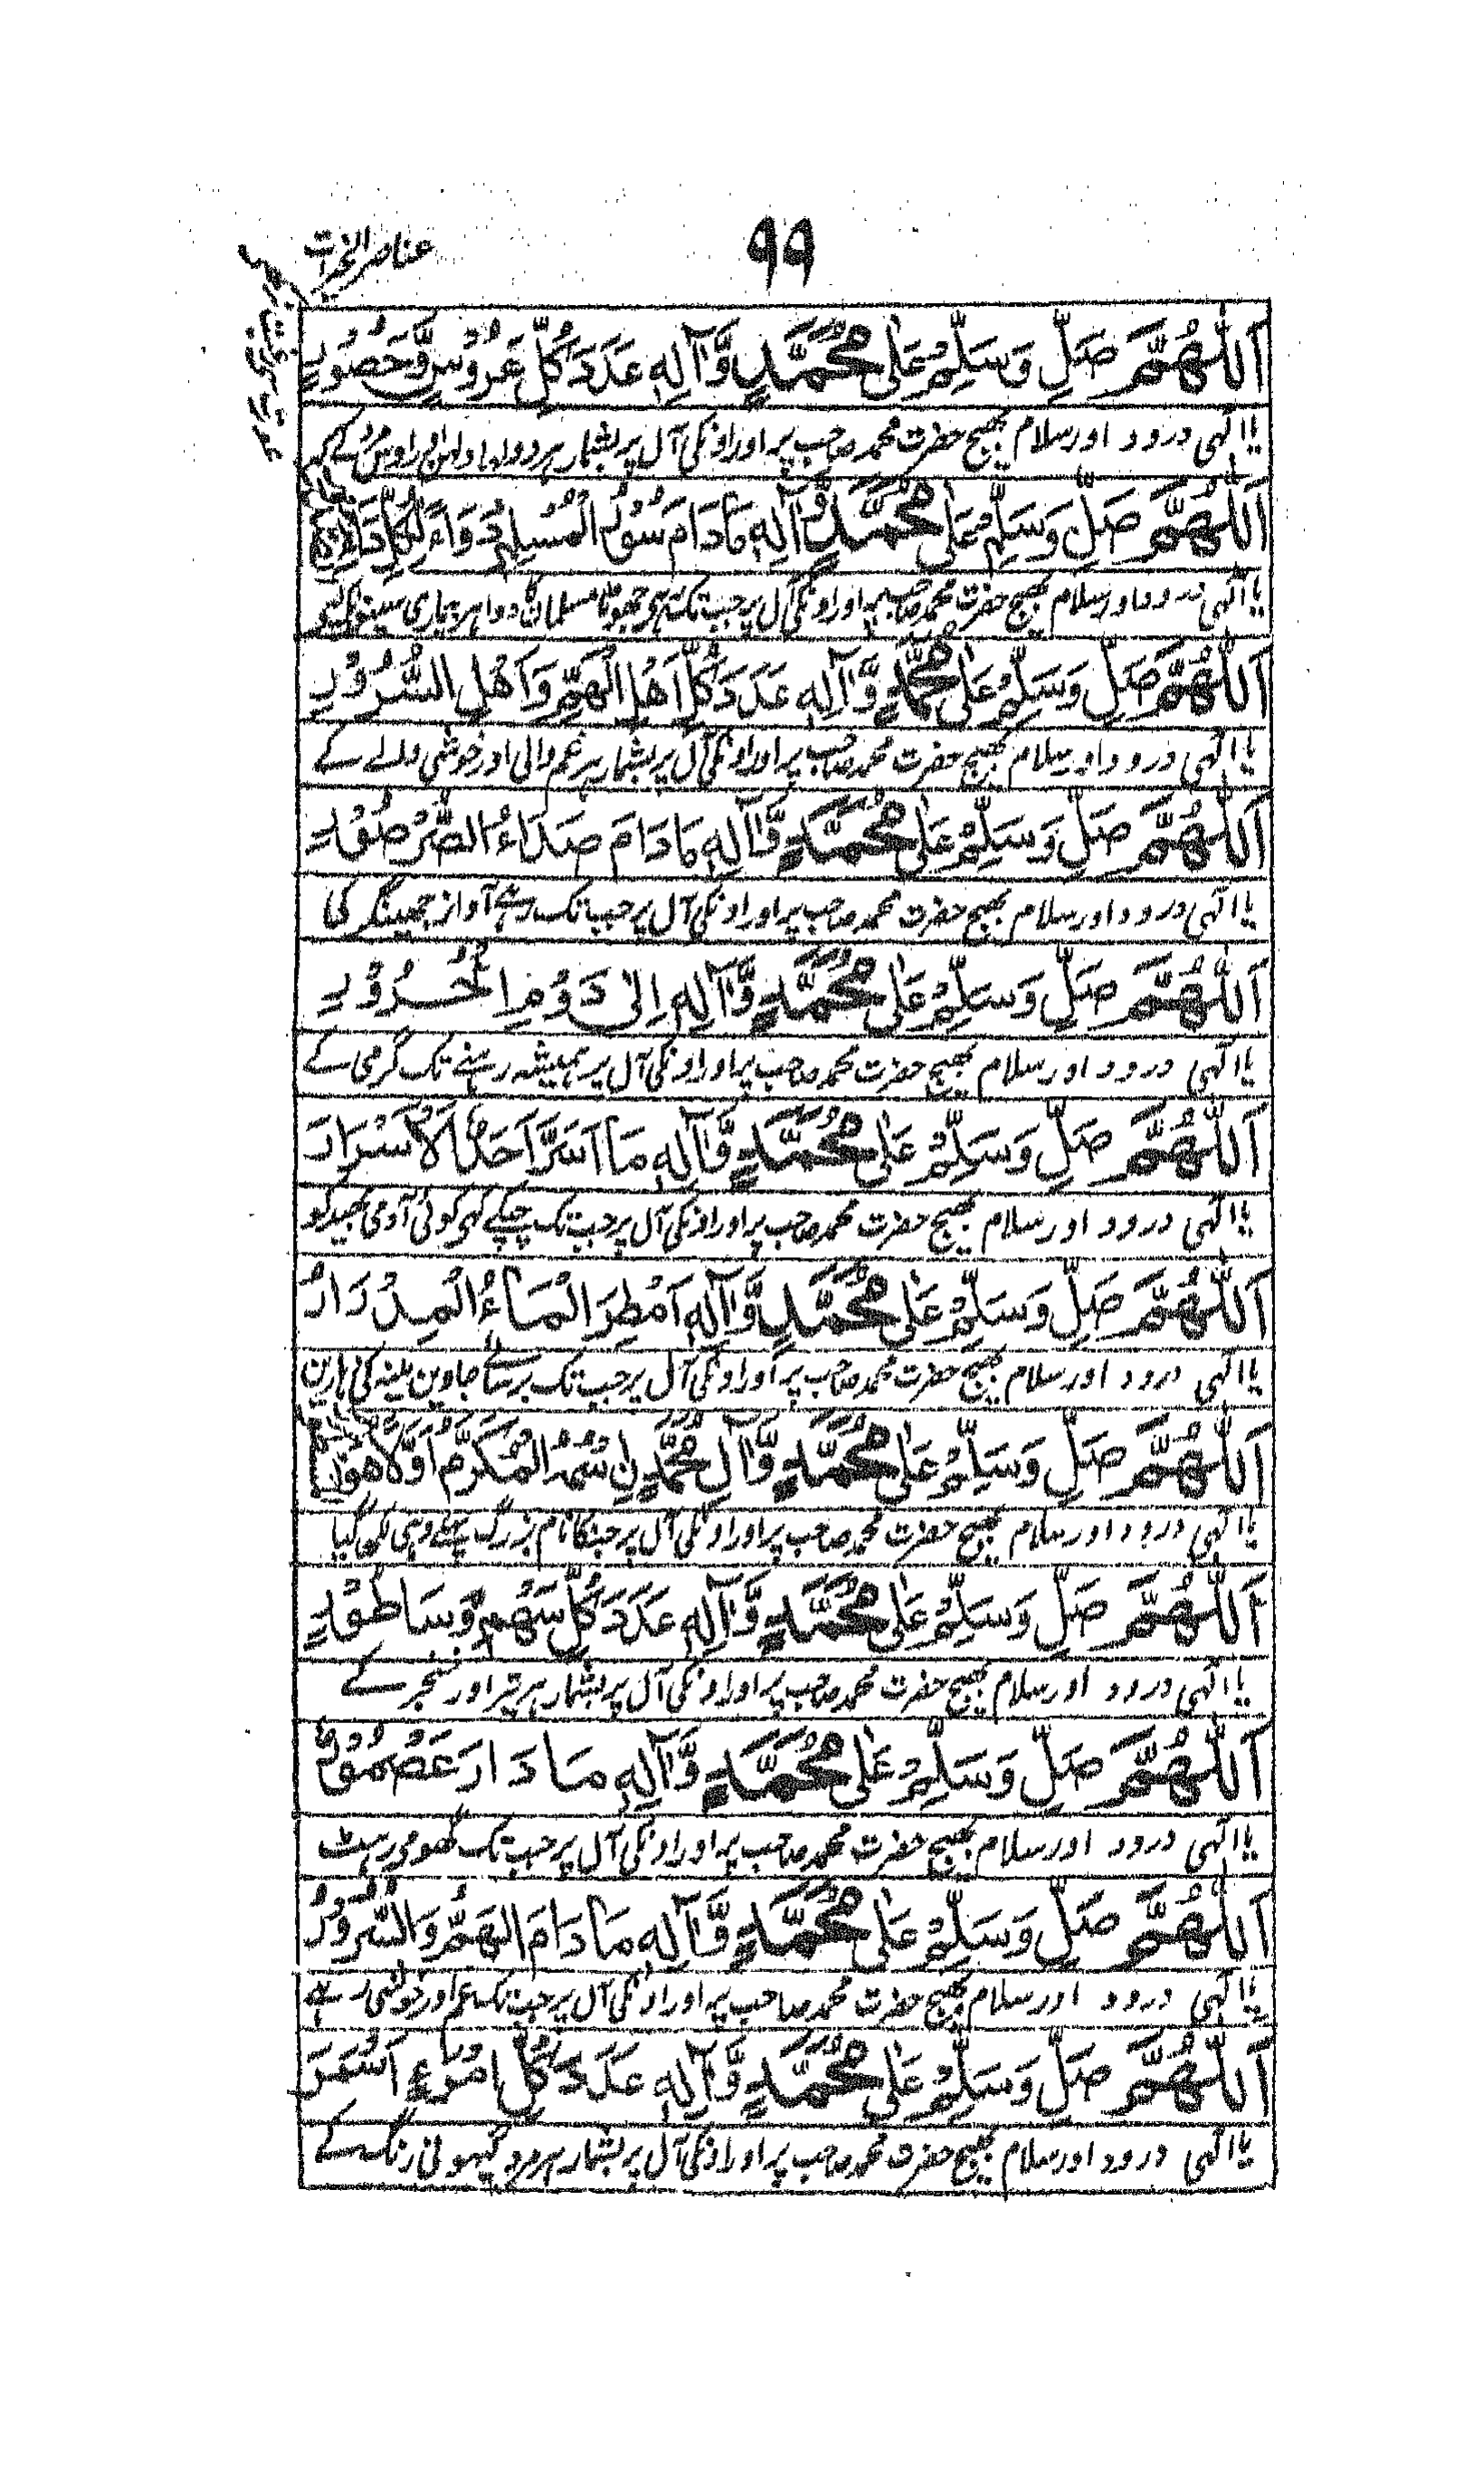 ٩٩
عناصر الخیرات
اَللّٰهُمَّ صَلِّ وَسَلِّمْ عَلٰی مُحَمَّدٍ وَّاٰلِهٖ عَدَدَ كُلِّ عَرُوْسٍ وَّحَصُوْرٍ
یا الٰہی درود اور سلام بھیج حضرت محمد صاحب پر اور اونکی آل پر بشمار ہر دولہا
اَللّٰهُمَّ صَلِّ وَسَلِّمْ عَلٰی مُحَمَّدٍ وَّاٰلِهٖ مَادَامَ سُوْرُ الْمُسْلِمِ دَوَاءً لِّكُلِّ
یا الٰہی درود اور سلام بھیج حضرت محمد صاحب پر اور اونکی آل پر جب تک رہے جھوٹا مسلمان کا دوا ہر بیماری
اَللّٰهُمَّ صَلِّ وَسَلِّمْ عَلٰی مُحَمَّدٍ وَّاٰلِهٖ عَدَدَ كُلِّ اَهْلِ الْهَمِّ وَاَهْلِ السُّرُوْرِ
یا الٰہی درود اور سلام بھیج حضرت محمد صاحب پر اور اونکی آل پر بشمار ہر غم والی اور خوشی والے کے
اَللّٰهُمَّ صَلِّ وَسَلِّمْ عَلٰی مُحَمَّدٍ وَّاٰلِهٖ مَادَامَ صَدَاءُ الصُّرْصُوْرِ
یا الٰہی درود اور سلام بھیج حضرت محمد صاحب پر اور اونکی آل پر جب تک رہے آواز جھینگر کی
اَللّٰهُمَّ صَلِّ وَسَلِّمْ عَلٰی مُحَمَّدٍ وَّاٰلِهٖ اِلٰی دَوُمِ الْحُرُوْرِ
یا الٰہی درود اور سلام بھیج حضرت محمد صاحب پر اور اونکی آل پر ہمیشہ رہنے تک گرمی کے
اَللّٰهُمَّ صَلِّ وَسَلِّمْ عَلٰی مُحَمَّدٍ وَّاٰلِهٖ مَا اَسَرَّ اَحَدٌ الْاَسْرَارَ
یا الٰہی درود اور سلام بھیج حضرت محمد صاحب پر اور اونکی آل پر جب تک چپکے کہی کوئی آدمی بھید کو
اَللّٰهُمَّ صَلِّ وَسَلِّمْ عَلٰی مُحَمَّدٍ وَّاٰلِهٖ اَمْطِرَ الْمَاءُ الْمِدْرَارُ
یا الٰہی درود اور سلام بھیج حضرت محمد صاحب پر اور اونکی آل پر جب تک برسائے جاوین مینہ کی
اَللّٰهُمَّ صَلِّ وَسَلِّمْ عَلٰی مُحَمَّدٍ وَّاٰلِ مُحَمَّدِنِ اسْمُهُ الْمُكَرَّمُ اَوَّلًا هُوَ
یا الٰہی درود اور سلام بھیج حضرت محمد صاحب پر اور اونکی آل پر جنکا نام بزرگ پہلے وہی لکھا گیا
اَللّٰهُمَّ صَلِّ وَسَلِّمْ عَلٰی مُحَمَّدٍ وَّاٰلِهٖ عَدَدَ كُلِّ سَهْمٍ وَّسَاطُوْرٍ
یا الٰہی درود اور سلام بھیج حضرت محمد صاحب پر اور اونکی آل پر بشمار ہر تیر اور خنجر کے
اَللّٰهُمَّ صَلِّ وَسَلِّمْ عَلٰی مُحَمَّدٍ وَّاٰلِهٖ مَا دَارَ عَصْمُوْرٌ
یا الٰہی درود اور سلام بھیج حضرت محمد صاحب پر اور اونکی آل پر جب تک گھومی رہٹ
اَللّٰهُمَّ صَلِّ وَسَلِّمْ عَلٰی مُحَمَّدٍ وَّاٰلِهٖ مَادَامَ الْهَمُّ وَالسُّرُوْرُ
یا الٰہی درود اور سلام بھیج حضرت محمد صاحب پر اور اونکی آل پر جب تک غم اور خوشی رہے
اَللّٰهُمَّ صَلِّ وَسَلِّمْ عَلٰی مُحَمَّدٍ وَّاٰلِهٖ عَدَدَ كُلِّ امْرِءٍ اَسْمَرَ
یا الٰہی درود اور سلام بھیج حضرت محمد صاحب پر اور اونکی آل پر بشمار ہر مرد گیہونی رنگ کے